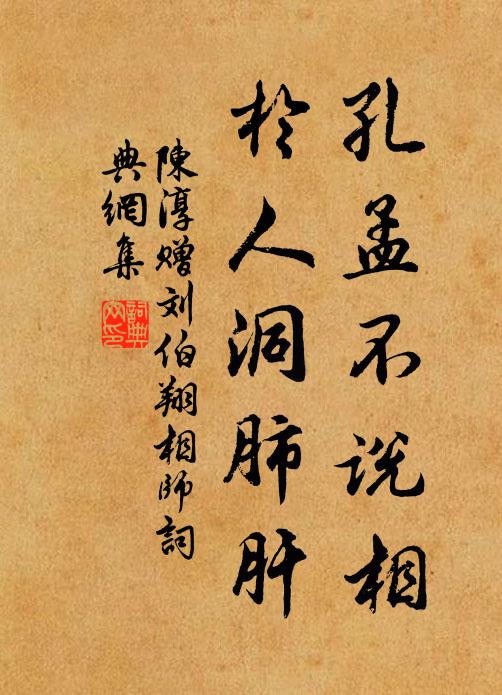 孔孟不说相
於人洞肺肝
陳淳赠刘伯翔相師詞
典網集
詞典
网印